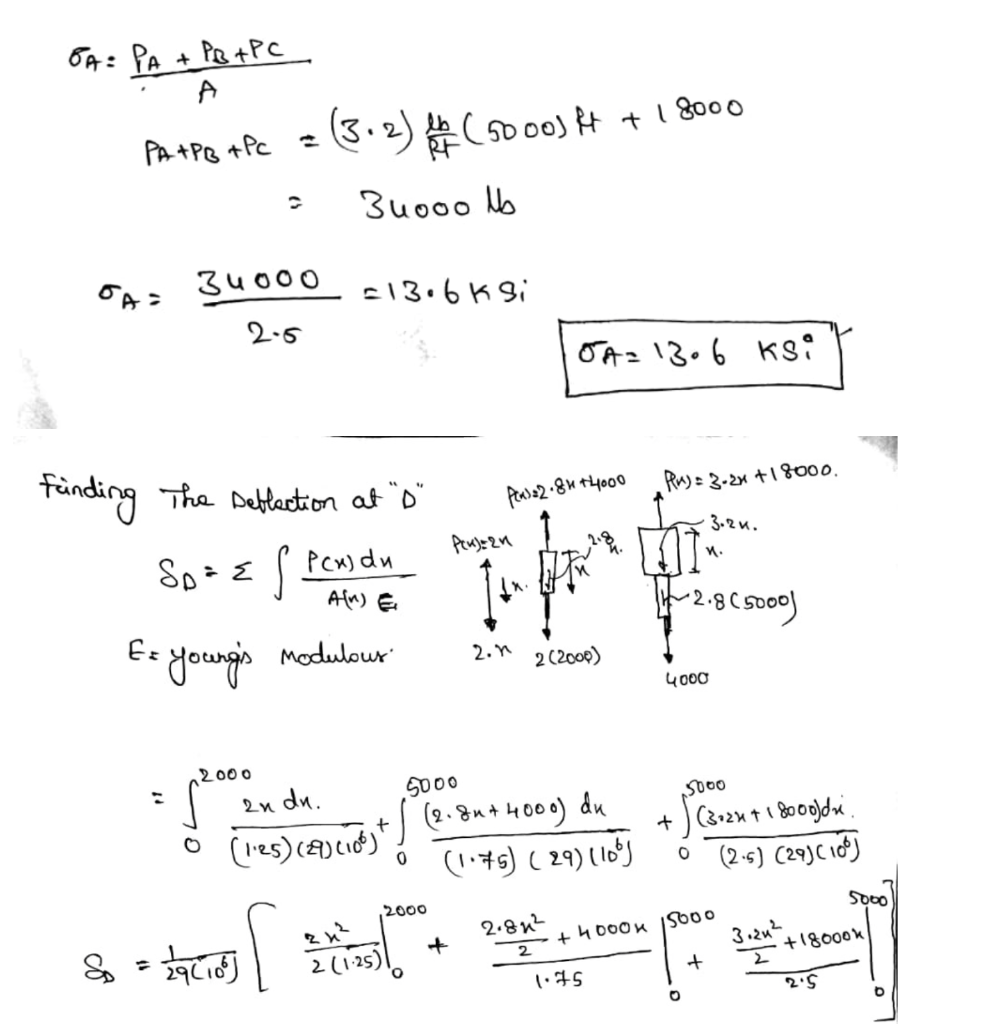 σA = PA + PB + PC / A
PA + PB + PC = (3.2) lb/ft (5000) ft + 18000
= 34000 lb
σA = 34000 / 2.5 = 13.6 KSi
σA = 13.6 KSi
Fünding The Deflection at "D"
P(x)=2.8x+4000
P(x) = 3.2x + 18000.
δD = Σ ∫ P(x) dx / A(x) E
P(x)=2x
x.
2.8x.
x
3.2x.
x.
2.8(5000)
E = young's Modulour
2.x
2(2000)
4000
= ∫ 0 2000 2x dx. / (1.25)(29)(10⁶) + ∫ 0 5000 (2.8x + 4000) dx / (1.75) (29)(10⁶) + ∫ 0 5000 (3.2x + 18000)dx. / (2.5) (29)(10⁶)
δD = 1 / 29(10⁶) [ 2x² / 2(1.25) | 0 2000 + 2.8x² / 2 + 4000x / 1.75 | 0 5000 + 3.2x² / 2 + 18000x / 2.5 | 0 5000 ]